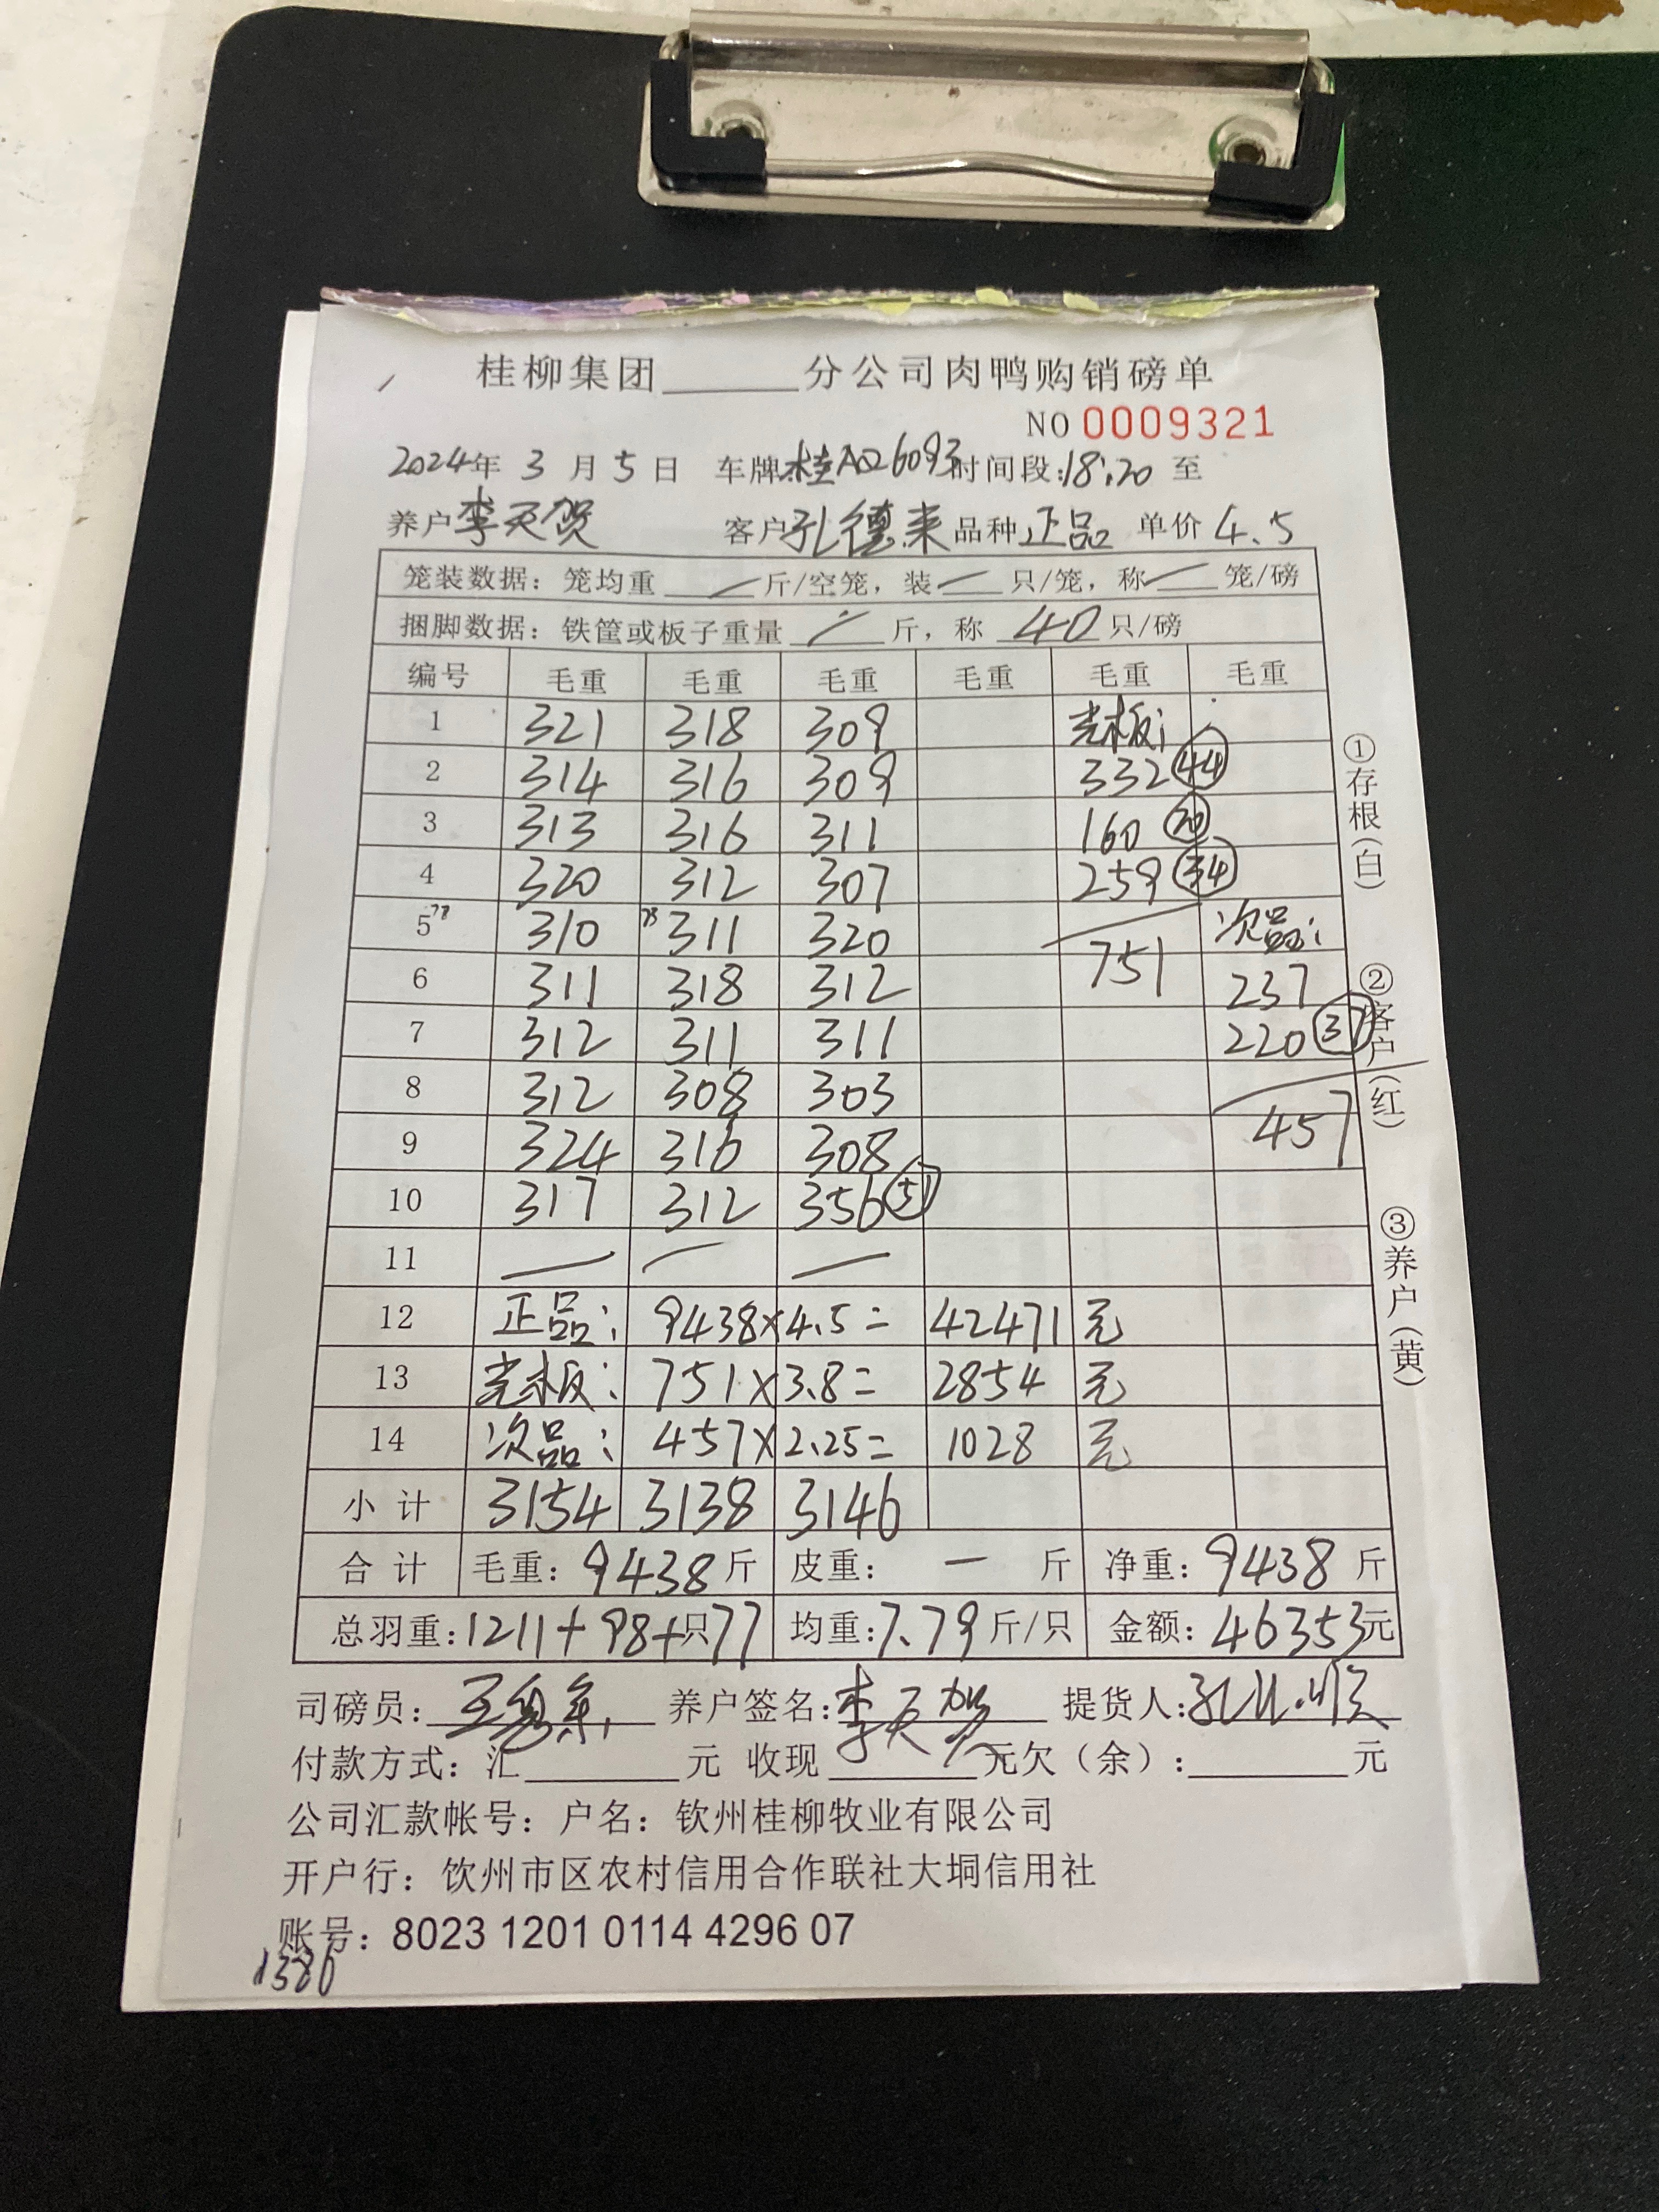 桂柳集团______分公司肉鸭购销磅单
NO 0009321
2024年 3 月 5 日 车牌桂AQ26093时间段:18:20 至
养户李天贺 客户孔德来 品种正品 单价 4.5
笼装数据：笼均重 — 斤/空笼，装 — 只/笼，称 — 笼/磅
捆脚数据：铁筐或板子重量 — 斤，称 40 只/磅
编号 毛重 毛重 毛重 毛重 毛重 毛重
1 321 318 309 光板:
2 314 316 309 332 44
3 313 316 311 160 20
4 320 312 307 259 34
5 78 310 78 311 320 次品:
6 311 318 312 751 237
7 312 311 311 220 37
8 312 308 303
9 324 316 308 457
10 317 312 356 51
11 — — —
12 正品: 9438×4.5= 42471 元
13 光板: 751×3.8= 2854 元
14 次品: 457×2.25= 1028 元
小计 3154 3138 3146
合计 毛重: 9438 斤 皮重: — 斤 净重: 9438 斤
总羽重: 1211+98+只77 均重: 7.79 斤/只 金额: 46353元
司磅员: 养户签名: 李天贺 提货人:
付款方式：汇______元 收现______元欠（余）:______元
公司汇款帐号：户名：钦州桂柳牧业有限公司
开户行：饮州市区农村信用合作联社大垌信用社
账号：8023 1201 0114 4296 07
1386
①存根(白)
②客户(红)
③养户(黄)